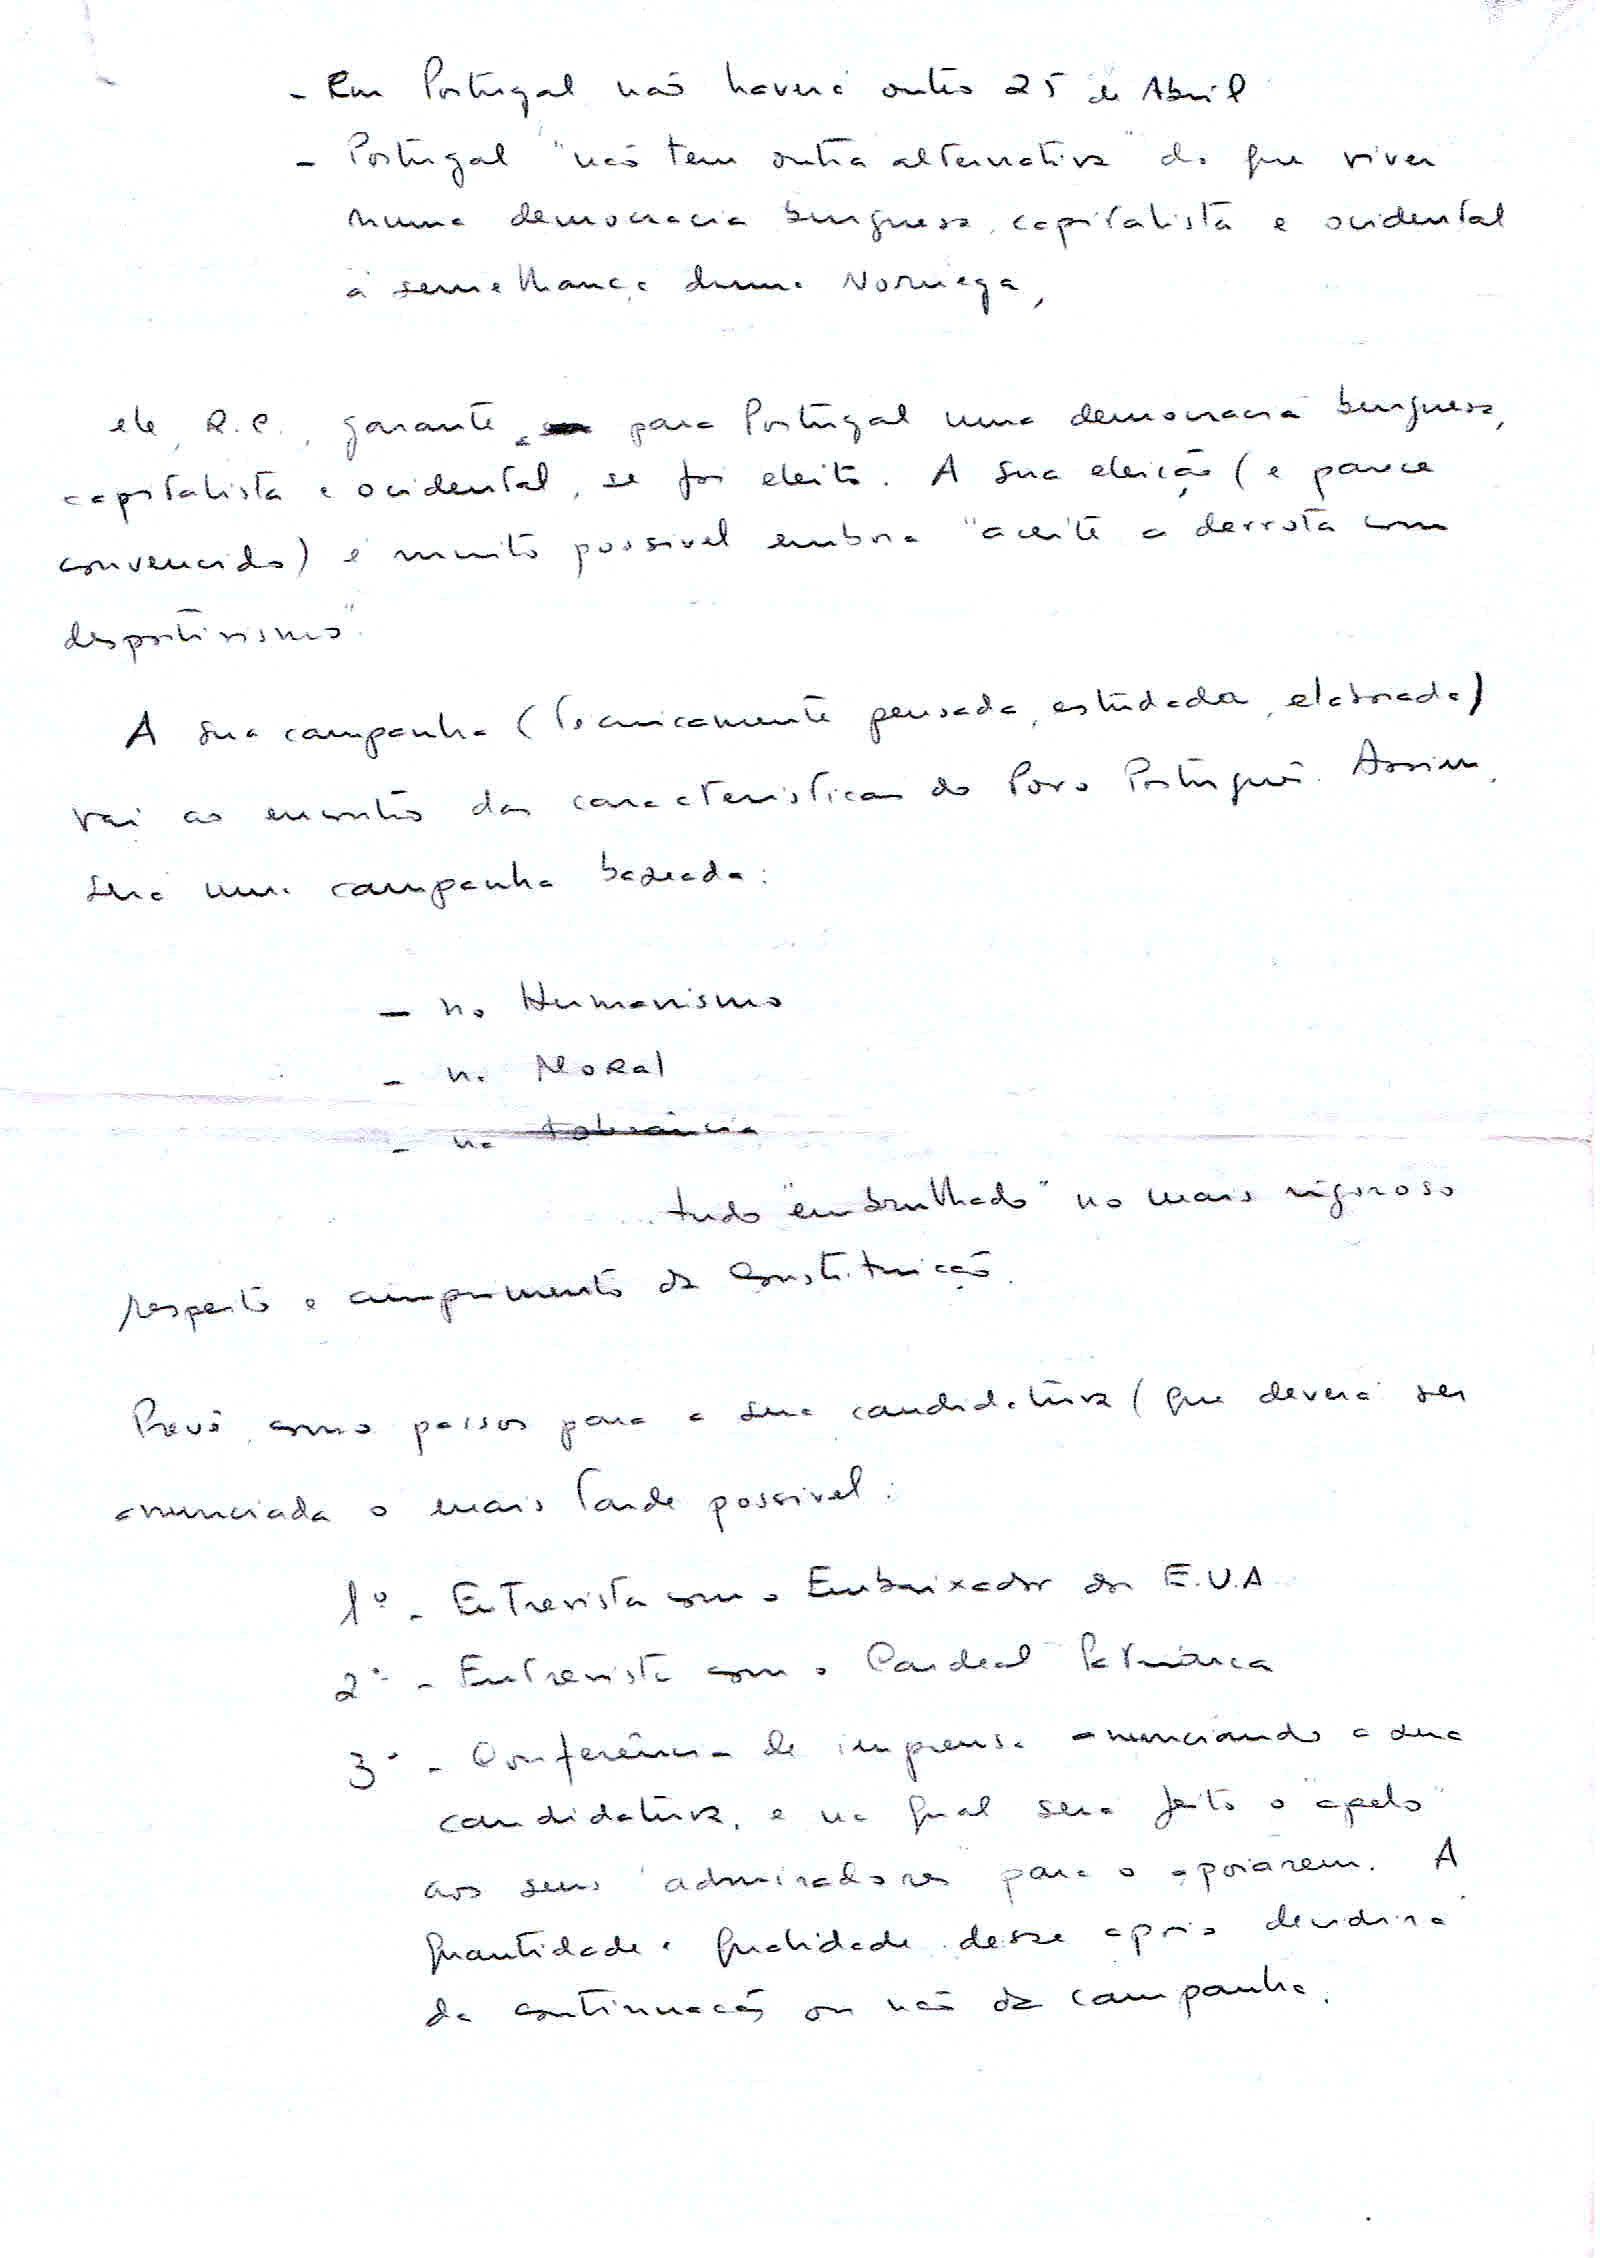 - Em Portugal não haverá outro 25 de Abril
- Portugal "não tem outra alternativa" do que viver
numa democracia burguesa, capitalista e ocidental
à semelhança duma Noruega,
ele, R.C., garante, para Portugal uma democracia burguesa,
capitalista e ocidental, se for eleito. A sua eleição (e parece
convencido) é muito possivel embora "aceite a derrota com
desportivismo".
A sua campanha (Tecnicamente pensada, estudada, elaborada)
vai ao encontro das caracteristicas do Povo Português. Assim,
será uma campanha baseada:
- no Humanismo
- na Moral
- na tolerância
...tudo "embrulhado" no mais rigoroso
respeito e cumprimento da Constituição.
Prevê, como passos para a sua candidatura (que deverá ser
anunciada o mais tarde possivel:
1º - Entrevista com o Embaixador dos E.U.A
2º - Entrevista com o Cardeal Patriarca
3º - Conferência de imprensa anunciando a sua
candidatura, e na qual será feito o "apelo"
aos seus admiradores para o apoiarem. A
quantidade e qualidade desse apoio decidirá
da continuação ou não da campanha.